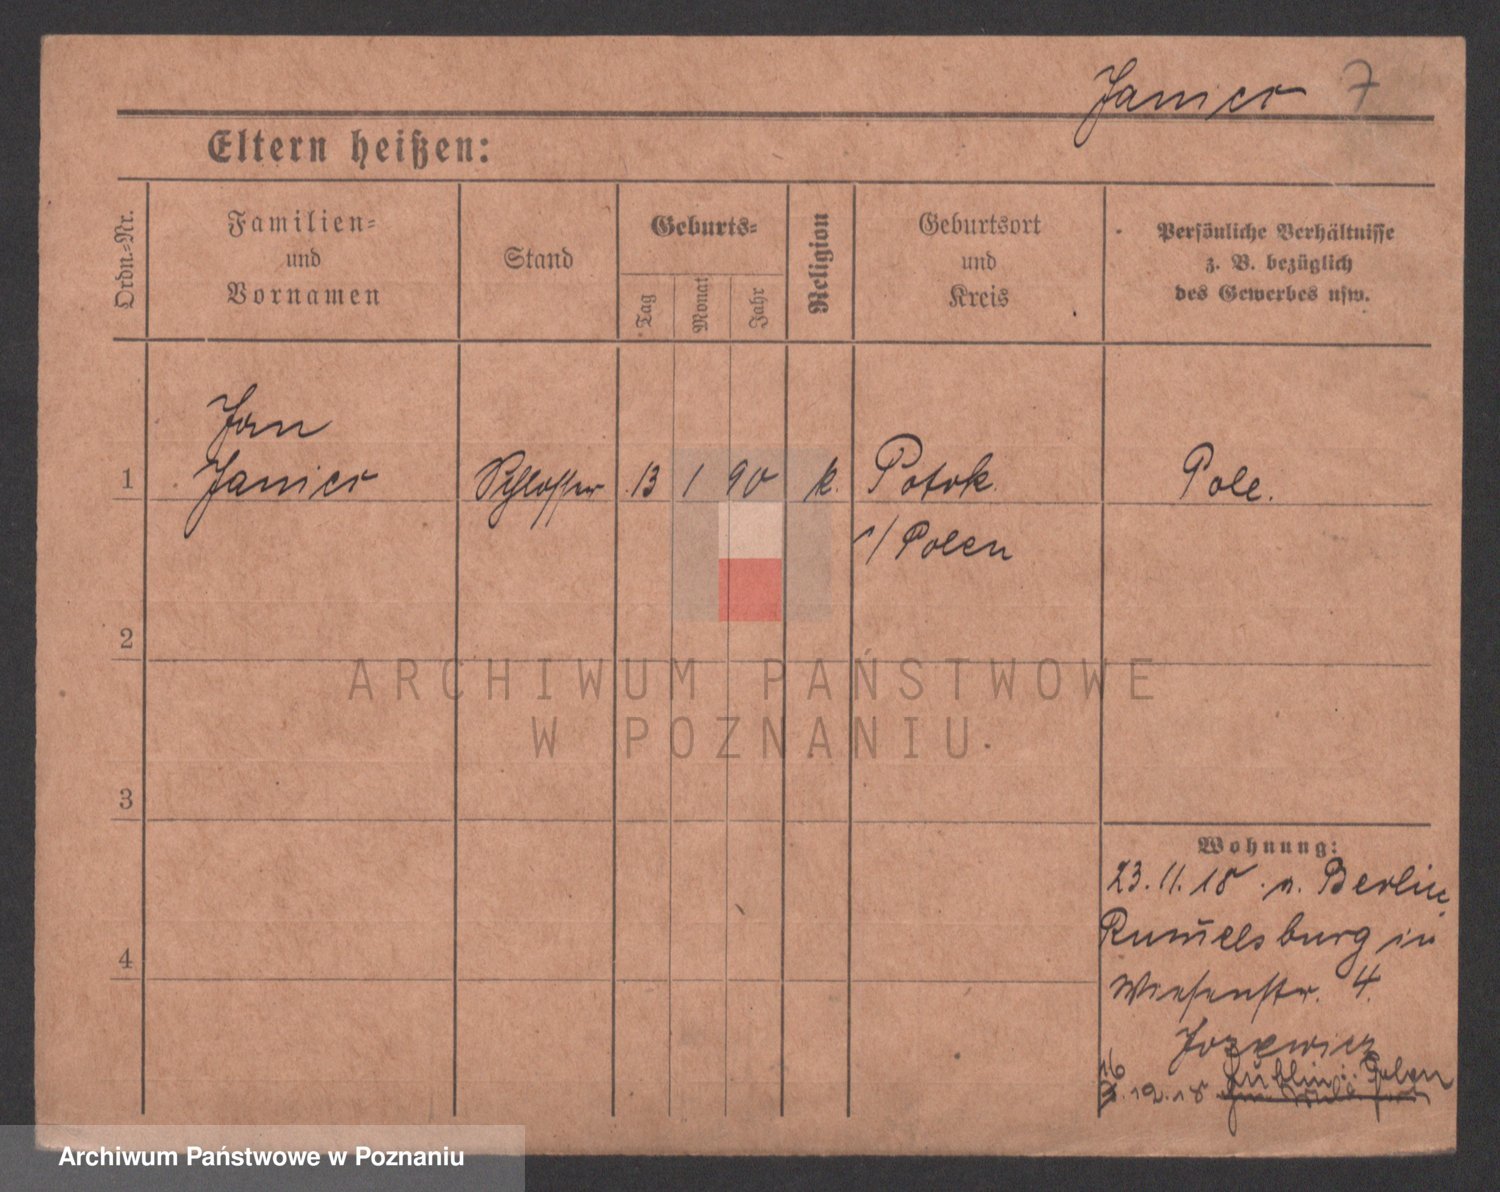 Janicz 7
Eltern heißen:
Ordn.-Nr.
Familien-
und
Vornamen
Stand
Geburts-
Tag
Monat
Jahr
Religion
Geburtsort
und
Kreis
Persönliche Verhältnisse
z. B. bezüglich
des Gewerbes usw.
Jan
1 Janicz Schlosser 13 1 90 k. Potok Pole.
i/ Polen
2
ARCHIWUM PAŃSTWOWE
W POZNANIU
3
Wohnung:
23.11.18. n. Berlin
Rum̄elsburg in
Wiesenstr. 4.
4
16
.12.18 Lublin i. Polen
Archiwum Państwowe w Poznaniu